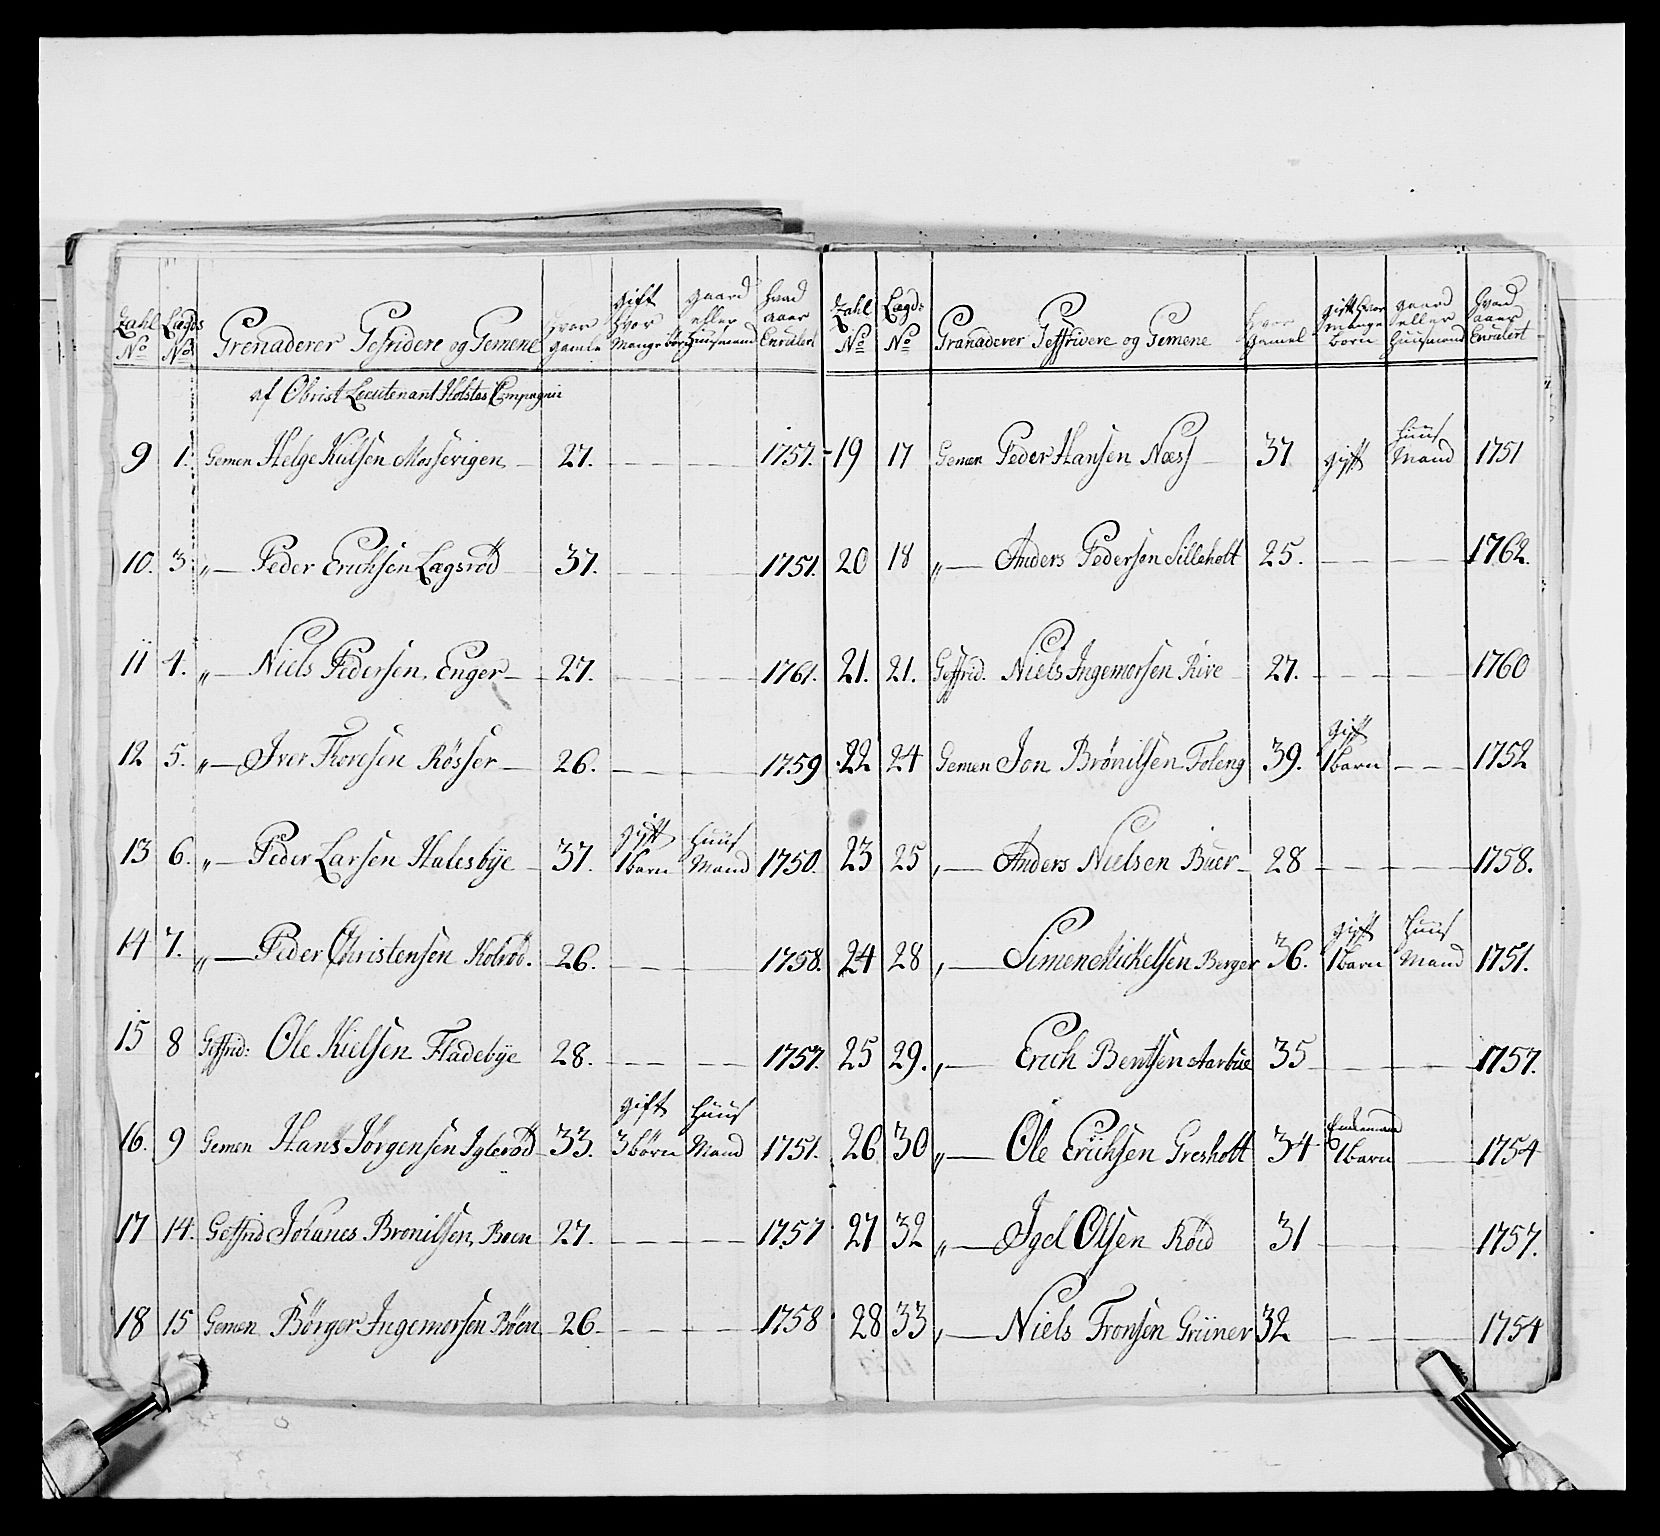 Zahl No | Lægds No | Grenaderer Gefridere og Gemene | hvor gamle | gift hvor Mange börn | gaard eller Huusmand | hvad aaer Enrulert
af Obrist Leutenant Holstes Compagnie
9 | 1. | Gemen Helge Kulsen Mossevigen | 27. | – | – | 1757.
10. | 3 | „ — Peder Erichsen Lagsröd | 37. | – | – | 1751.
11 | 4. | „ — Niels Pedersen, Enger | 27. | – | – | 1761.
12 | 5. | „ — Iver Thoresen Rösser | 26. | – | – | 1759
13 | 6. | „ — Peder Larsen Halesbÿe | 37. | gift 1 barn | Huus Mand | 1750.
14 | 7. | „ — Peder Christensen Kolröd. | 26. | – | – | 1758.
15 | 8 | Geffrid: Ole Kielsen Fladebÿe | 28. | – | – | 1757.
16. | 9 | Gemen Hans Jörgensen Igleröd | 33. | gift 3 börn | Huus Mand | 1751.
17 | 14. | Geffrid Johanes Bronilsen, Boen | 27. | – | – | 1757
18 | 15 | Gemen Börger Ingemorsen Böen | 26. | – | – | 1758
Zahl No | Lægds No | Granaderer Geffrivere og Gemene | hvor gamel | gift hvor mange born | gaard eller Huusmand | hvad aaer Enrulert
19 | 17 | Gemen Peder Hansen Næss | 37 | gift | Huus Mand | 1751
20 | 18 | „ — Anders Pedersen Silleholt | 25. | – | – | 1762.
21. | 21. | Geffrid. Niels Ingemorsen Rive | 27. | – | – | 1760
22 | 24 | Gemen Jon Brönilsen Foleng | 39. | gift 1 barn | – | 1752
23 | 25 | „ — Anders Nielsen Buer | 28 | – | – | 1758.
24 | 28 | „ — Simen Mickelsen Berger | 36. | gift 1 barn | Huus Mand | 1751.
25 | 29. | „ — Erich Bentsen Aarbue | 35 | – | – | 1757.
26 | 30 | „ — Ole Erichsen Gresholt | 34 | Enkemand 1 barn | – | 1754
27 | 32 | „ — Igel Olsen Röed | 31 | – | – | 1757.
28 | 33 | „ — Niels Tronsen Grüner | 32 | – | – | 1754